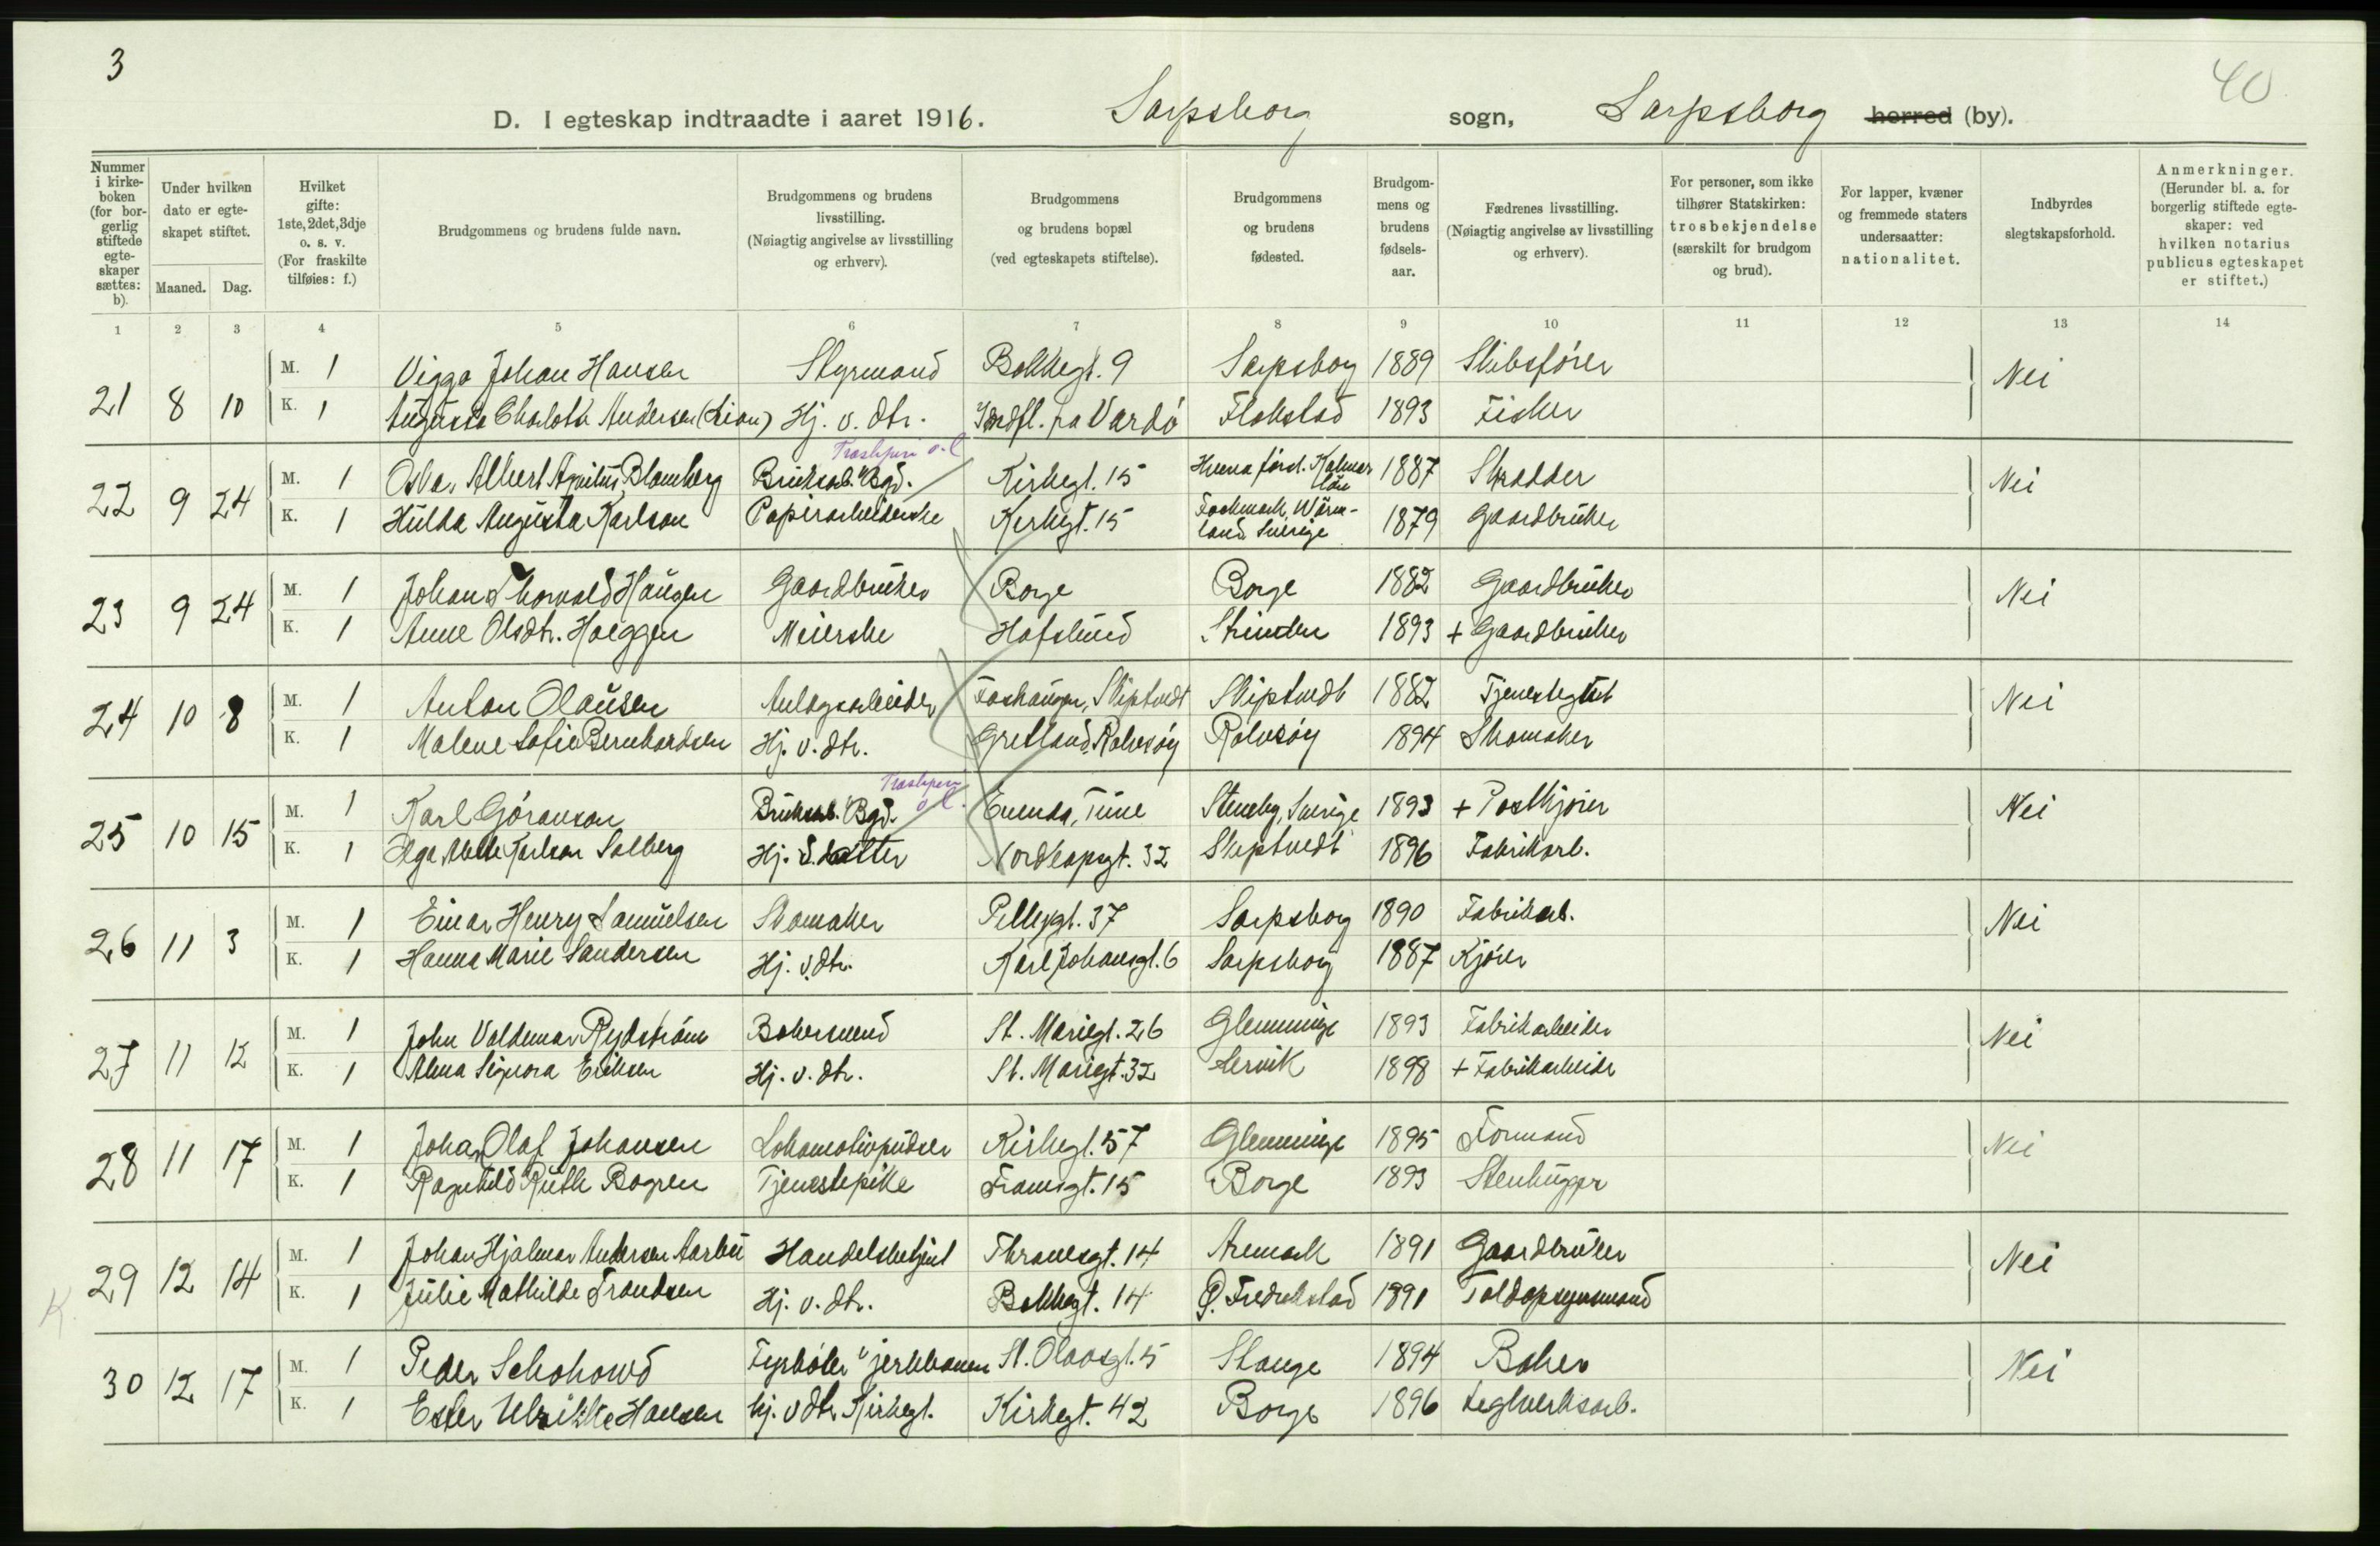 3
40
D. I egteskap indtraadte i aaret 1916. Sarpsborg sogn, Sarpsborg herred (by).
Nummer i kirkeboken (for borgerlig stiftede egteskaper sættes: b).
Under hvilken dato er egteskapet stiftet.
Maaned. Dag.
Hvilket gifte: 1ste, 2det, 3dje o. s. v. (For fraskilte tilføies: f.)
Brudgommens og brudens fulde navn.
Brudgommens og brudens livsstilling. (Nøiagtig angivelse av livsstilling og erhverv).
Brudgommens og brudens bopæl (ved egteskapets stiftelse).
Brudgommens og brudens fødested.
Brudgommens og brudens fødselsaar.
Fædrenes livsstilling. (Nøiagtig angivelse av livsstilling og erhverv).
For personer, som ikke tilhører Statskirken: trosbekjendelse (særskilt for brudgom og brud).
For lapper, kvæner og fremmede staters undersaatter: nationalitet.
Indbyrdes slegtskapsforhold.
Anmerkninger. (Herunder bl. a. for borgerlig stiftede egteskaper: ved hvilken notarius publicus egteskapet er stiftet.)
1 2 3 4 5 6 7 8 9 10 11 12 13 14
M. 1 Viggo Johan Hansen Styrmand Bakkegt. 9 Sarpsborg 1889 Skibsfører
21 8 10 Nei
K. 1 Augusta Charlotte Andersen Hj. v. dtr. Vardö Flakstad 1893 Fisker
M. 1 Albert Blomberg Bruksarb. Bgd. Kirkegt. 15 Kalmar län 1887 Skrædder
22 9 24 Nei
K. 1 Hulda Augusta Karlson Papirarbeiderske Kirkegt. 15 Wärmland Sverige 1879 Gaardbruker
M. 1 Johan Thorvald Haugen Gaardbruker Borge Borge 1882 Gaardbruker
23 9 24 Nei
K. 1 Anne Olsdtr. Haeggen Meierske Hafslund Strinden 1893 + Gaardbruker
M. 1 Anton Olausen Anlægsarbeider Skiptvedt Skiptvedt 1882 Tjenestegut
24 10 8 Nei
K. 1 Malene Sofie Bernhardsen Hj. v. dtr. Gretland, Rolvsöy Rolvsöy 1894 Skomaker
M. 1 Karl Göranson Bruksarb. Bgd. Steneby, Sverige 1893 + Postkjører
25 10 15 Nei
K. 1 Karlsen Solberg Hj. v. datter Nordkapgt. 32 Skiptvedt 1896 Fabrikarb.
M. 1 Einar Henry Samuelsen Skomaker Pellygt. 37 Sarpsborg 1890 Fabrikarb.
26 11 3 Nei
K. 1 Hanna Marie Sandersen Hj. v. dtr. Karl Johansgt. 6 Sarpsborg 1887 Kjører
M. 1 John Valdemar Rydström Bakersvend St. Mariegt. 26 Glemminge 1893 Fabrikarbeider
27 11 12 Nei
K. 1 Alma Signora Eriksen Hj. v. dtr. St. Mariegt. 32 Lervik 1898 + Fabrikarbeider
M. 1 Johan Olaf Johansen Lokomotivpudser Kirkegt. 57 Glemminge 1895 Formand
28 11 17 Nei
K. 1 Ragnhild Ruth Bogren Tjenestepike Framsgt. 15 Borge 1893 Stenhugger
M. 1 Johan Hjalmar Andersen Aarbu Handelsbetjent Thranesgt. 14 Aremark 1891 Gaardbruker
29 12 14 Nei
K. 1 Julie Mathilde Frandsen Hj. v. dtr. Bakkegt. 14 Ø. Fredrikstad 1891 Toldopsynsmand
K.
M. 1 Peder Schohowd Fyrbøter v/ jernbanen St. Olavsgt. 5 Stange 1894 Baker
30 12 17 Nei
K. 1 Ester Ulrikke Hansen hj. v. dtr. Kirkegt. Kirkegt. 42 Borge 1896 Teglverksarb.